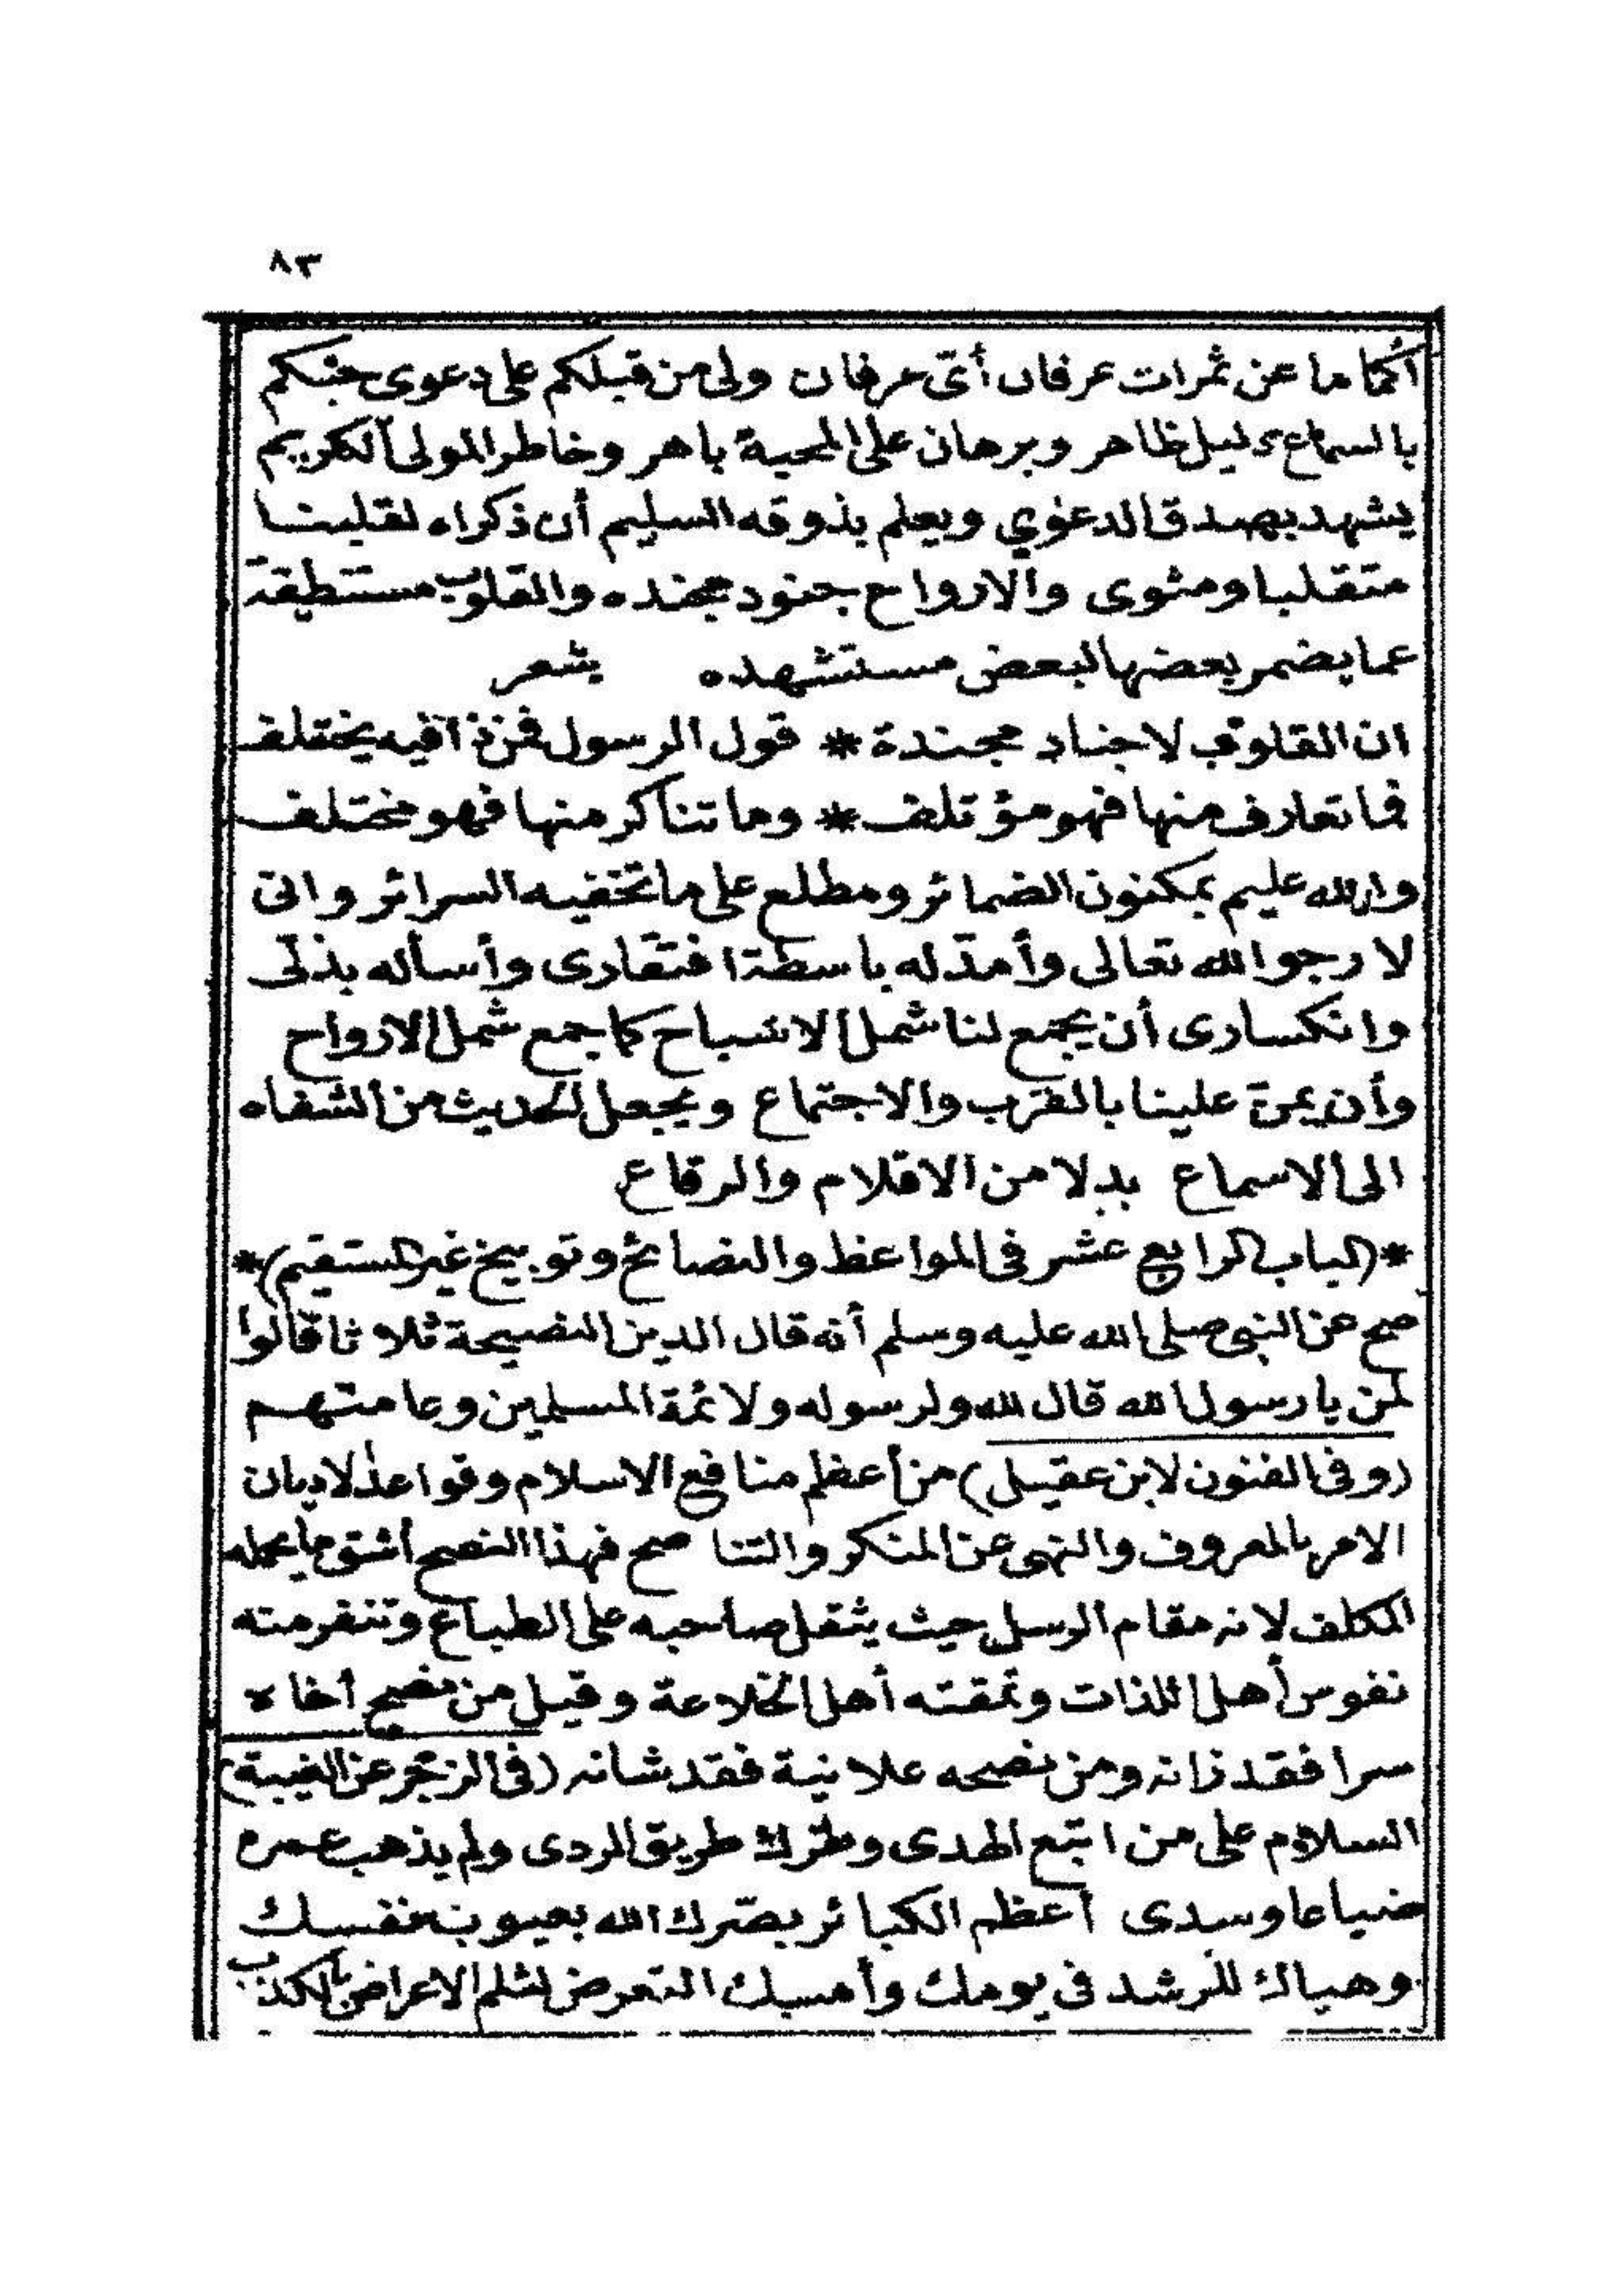 ٨٣
أكماما عن ثمرات عرفان أىّ عرفان ولى من قبلكم على دعوى حبكم
بالسماع دليل ظاهر وبرهان على المحبة باهر وخاطر المولى الكريم
يشهد بصدق الدعوي ويعلم بذوقه السليم أن ذكراه لقلبنا
متقلبا ومثوى والارواح جنود مجنده والقلوب مستنطقة
عما يضمر بعضها لبعض مستشهده شعر
ان القلوب لاجناد مجندة * قول الرسول فمن ذا فيه يختلف
فما تعارف منها فهو مؤتلف * وما تناكر منها فهو مختلف
والله عليم بمكنون الضمائر ومطلع على ما تخفيه السرائر وانى
لارجو الله تعالى وأمدّ له باسطة افتقارى وأسأله بذلّى
وانكسارى أن يجمع لنا شمل الاشباح كما جمع شمل الارواح
وأن يمنّ علينا بالقرب والاجتماع ويجعل الحديث من الشفاه
الى الاسماع بدلا من الاقلام والرقاع
*(الباب الرابع عشر فى المواعظ والنصائح وتوبيخ غير المستقيم)*
صح عن النبى صلى الله عليه وسلم أنه قال الدين النصيحة ثلاثا قالوا
لمن يا رسول الله قال لله ولرسوله ولائمة المسلمين وعامتهم
(وفى الفنون لابن عقيل) من أعظم منافع الاسلام وقواعد الاديان
الامر بالمعروف والنهى عن المنكر والتناصح فهذا النصح أشق ما يحمله
المكلف لانه مقام الرسل حيث يثقل صاحبه على الطباع وتنفر منه
نفوس أهل اللذات وتمقته أهل الخلاعة وقيل من نصح أخاه
سرا فقد زانه ومن نصحه علانية فقد شانه (فى الزجر عن الغيبة)
السلام على من اتبع الهدى وترك طريق الردى ولم يذهب عمره
ضياعا وسدى أعظم الكبائر بصّرك الله بعيوب نفسك
وهياك للرشد فى يومك وأمسك التعرض لثلم الاعراض بالكذب